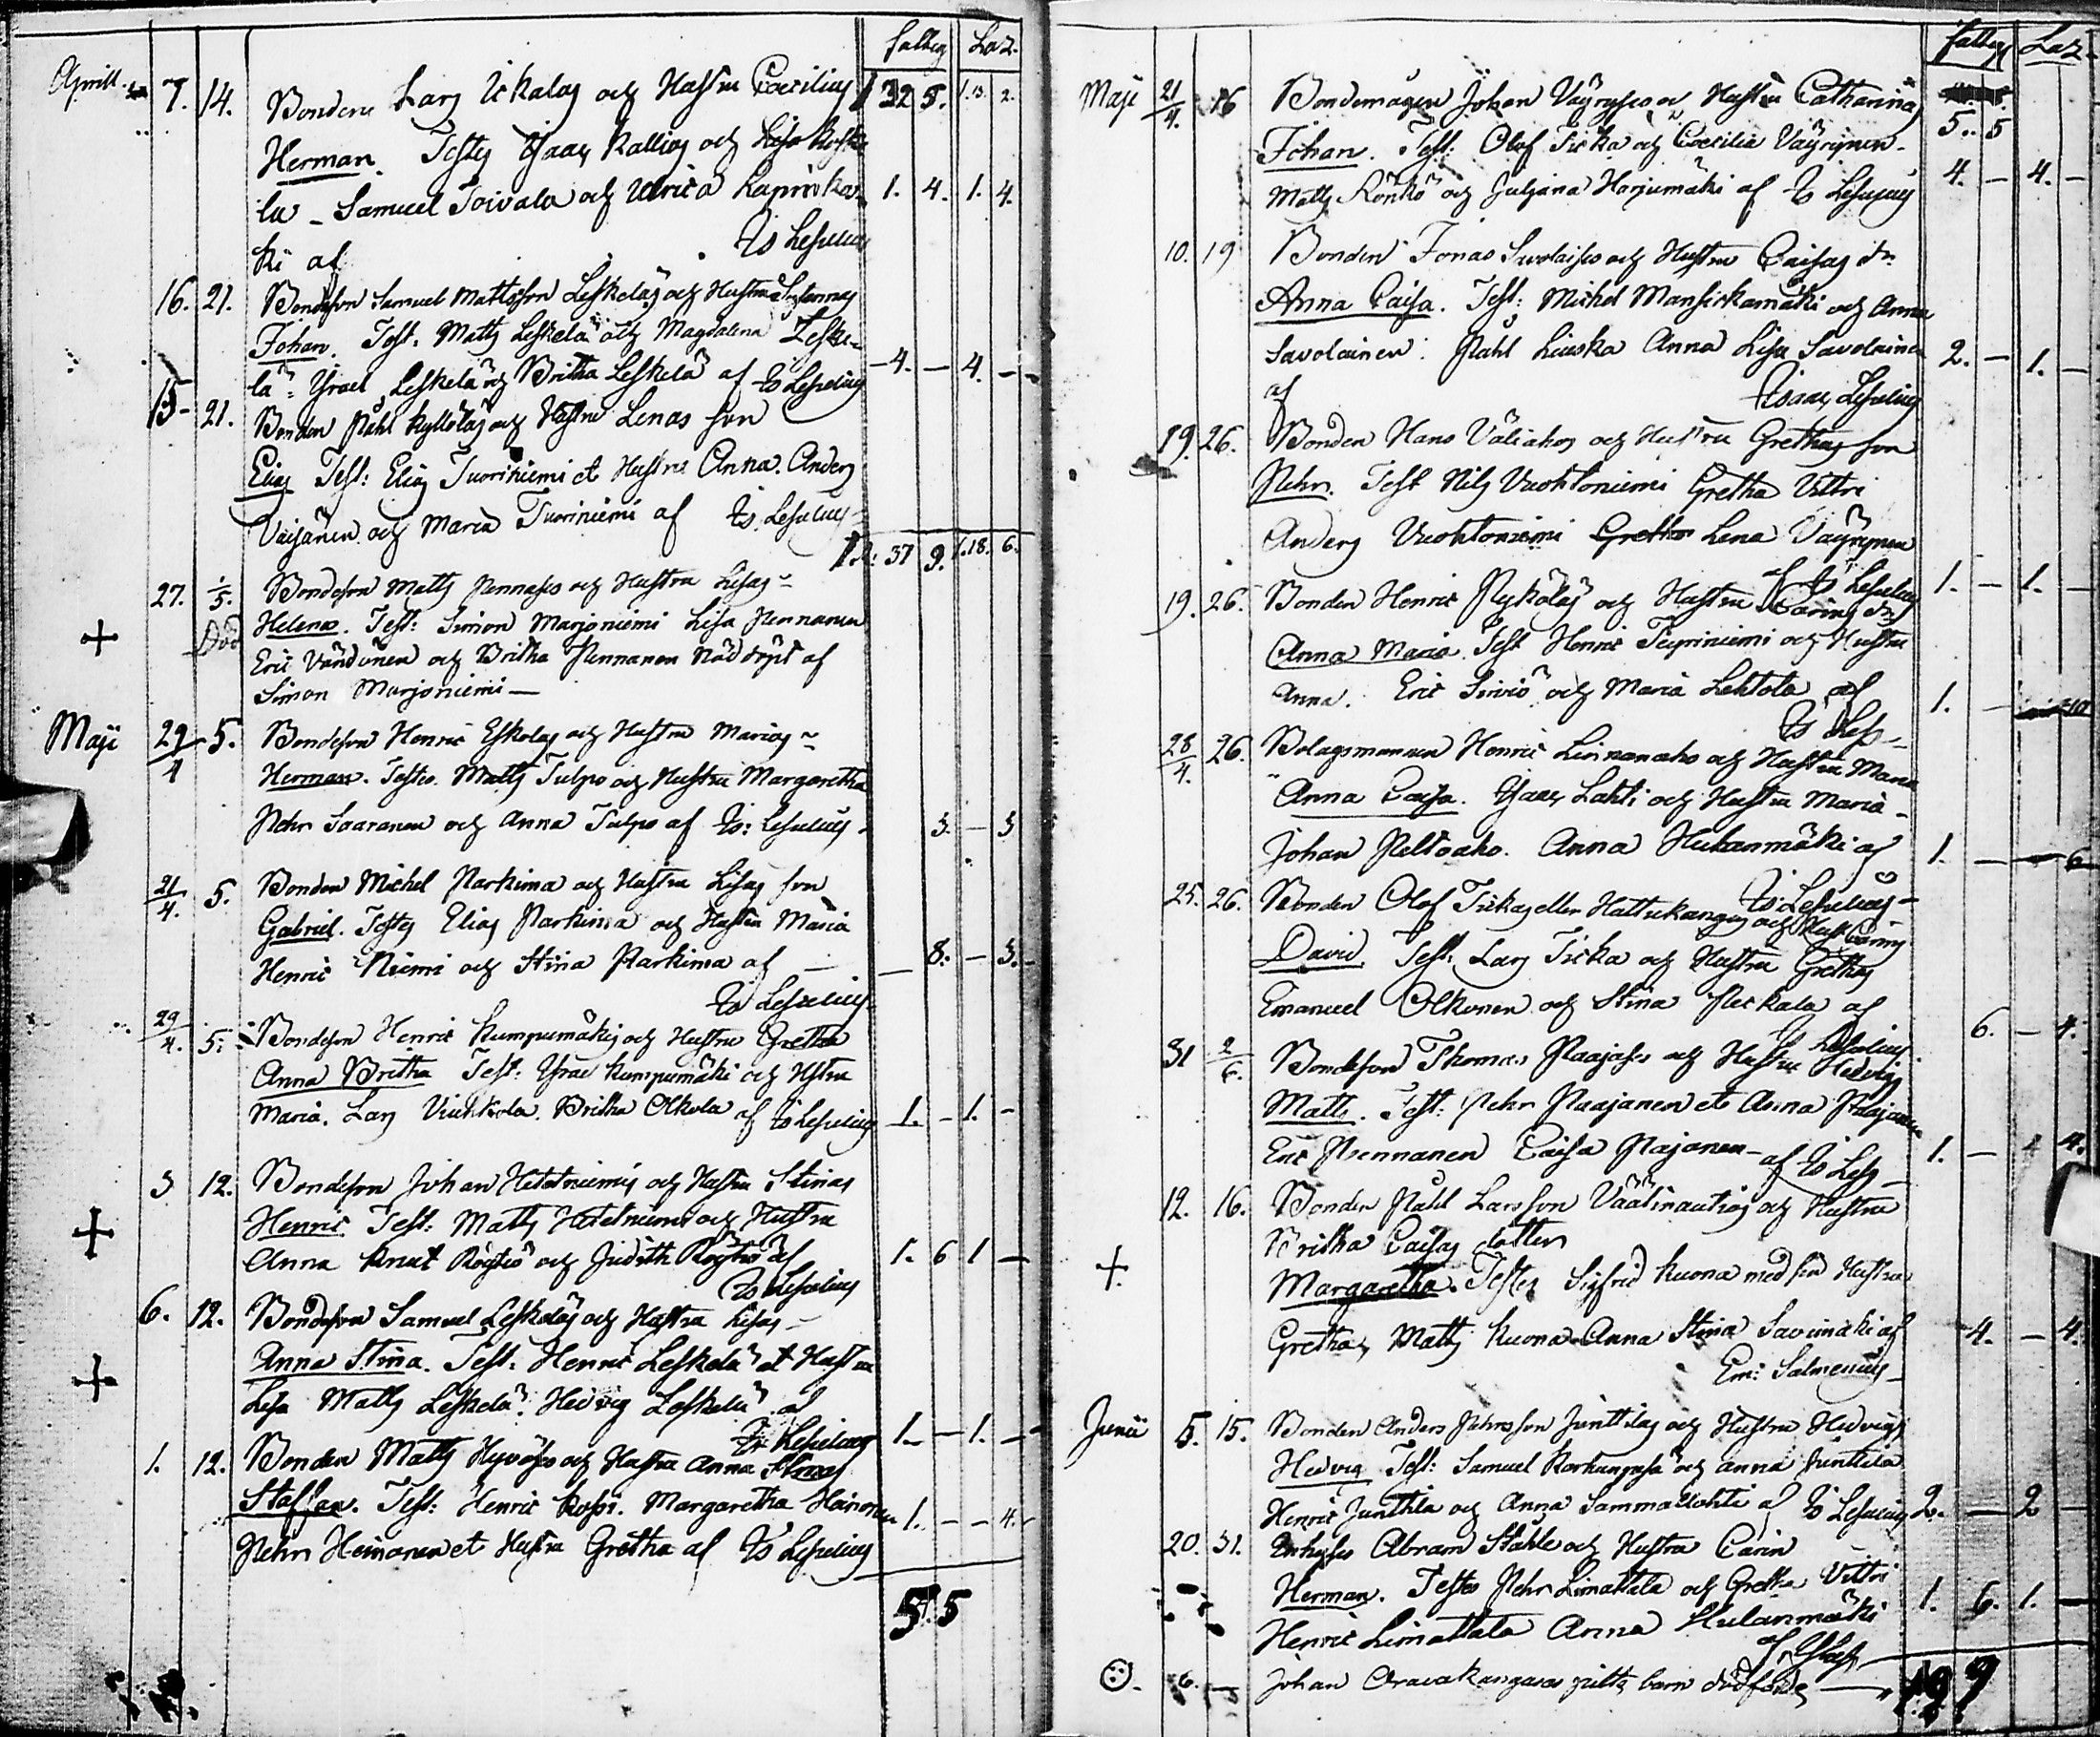 fattig Laz.
Aprill 7. 14. Bonden Lars Ukolas och Hustru Coecilias 1 32 5. 1.13. 2.
Herman. Testes Isaac Kallio och Lisa
la - Samuel Toivala och Ulrica 1. 4. 1. 4.
ki af Is Leseelius
16. 21. Bondeson Samuel Mattsson Leskeläs och Hustru Susannas
Johan. Test. Matts Leskelä och Magdalena Leske-
lä. Israel Leskelä och Britha Leskelä af Is Leseelius - 4. - 4. -
15 - 21. Bonden Påhl Kylläläs och Hustru Lenas son
Elias Test: Elias Tuoriniemi et Hustru Anna. Anders
Väisänen och Maria Tuoriniemi af Is. Leseelius
37 9. 1.18. 6.
27. 1/5. Bondeson Matts Pennases och Hustru Lisas
+ Död Helena. Test: Simon Marjoniemi Lisa Pennanen
Eric och Britha Pennanen Nöddöpt af
Simon Marjoniemi -
Maji 29/4 5. Bondeson Henric Eskolas och Hustru Marias
Herman. Testes. Matts Tulpo och Hustru Margaretha
Pehr Saaranen och Anna Tulpo af Is: Leseelius. 3. - 3
21/4. 5. Bonden Michel Parkima och Hustru Lisas son
Gabriel. Testes Elias Parkima och Hustru Maria
Henric Niemi och Stina Parkima af - - 8. - 3.
Is Leseelius.
29/4. 5. Bondeson Henric Kumpumäkis och Hustru Gretha
Anna Britha Test: Israel Kumpumäki och Hstru
Maria. Lars Britha Olkola af Is Leseelius 1. - 1. -
3 12. Bondeson Johan Hetetniemis och Hustru Stinas
+ Henric Test: Matts Hetetniemi och Hustru
Anna Knut Röytiö och Judith Röytiö af 1. 6 1 -
Is Leseelius
6. 12. Bondeson Samuel Leskeläs och Hustru Lisas -
+ Anna Stina. Test: Henric Leskelä et Hustru
Lisa Matts Leskelä. Hedvig Leskelä af
Is Leseelius 1. - 1. -
1. 12. Bonden Matts Hyväses och Hustru Anna Stinas
Staffan. Test: Henric Rossi. Margaretha Heinonen 1. - - 4.
Pehr Heinonen et Hustru Gretha af Is Leseelius
5. 5
fattig Laz.
Maji 21/4. 16 Bondemågen Johan Väyryses och Hustru Catharina
Johan. Test: Olof Ticka och Coecilia Väyrynen - 5. 5
Matts Rönkö och Juljana Harjumäki af Is Leseelius 4. - 4. -
10. 19 Bonden Jonas Savolaises och Hustru Caisas dr
Anna Caisa. Test: Michel Mansickamäki och Anna
Savolainen. Påhl Liuska Anna Lisa Savolainen 2. - 1. -
af Isaac Leseelius
19. 26. Bonden Hans Väliahos och Hustru Grethas son
Pehr. Test Nils Vuohtoniemi Gretha Vittri
Anders Vuohtoniemi Gretha Lena Väyrynen
af Is Leseelius 1. - 1. -
19. 26. Bonden Henric Pykäläs och Hustru Carins dr
Anna Maria. Test Henric och Hustru
Anna. Eric Sirviö och Maria Lehtola af 1. -
Is Les-
28/4. 26. Bolagsmannen Henric Linnanaho och Hustru Maria
Anna Caisa. Isaac Lahti och Hustru Maria -
Johan Peltoaho. Anna Hukanmäki af 1. - - 6
25. 26. Bonden Olof Tickas eller Hattukangas och Hust Carins Is Leseelius -
David. Test: Lars Ticka och Hustru Grethas
Emanuel Olkonen och Stina Peckala af
Is Leseelius. 6. - 4.
31 2/6. Bondeson Thomas Paajases och Hustru Hedvigs
Matts. Test: Pehr Paajanen et Anna Paajanen
Eric Pennanen Caisa Pajanen - af Is Les - 1. - 4.
12. 16. Bonden Påhl Larsson Väätinautios och Hustru
+. Britha Caisas dotter
Margaretha. Testes Sigfred Kuona med sin Hustru
Gretha, Matts Kuona Anna Stina Savimäki af 4. - 4.
Em: Salmenius -
Junii 5. 15. Bonden Anders Pehrsson Junttilas och Hustru Hedvigs
Hedvig Test: Samuel och Anna Junttila
Henric Junttila och Anna Sammallahti af Is Leseelius 2. - 2 -
20. 31. Abram Ståhle och Hustru Carin
Herman. Testes Pehr Limattala och Gretha Vittri
Henric Limattala Anna Hulanmäki 1. 6. 1. -
6. - Johan Aravakangases barn dödfödde -
19 9